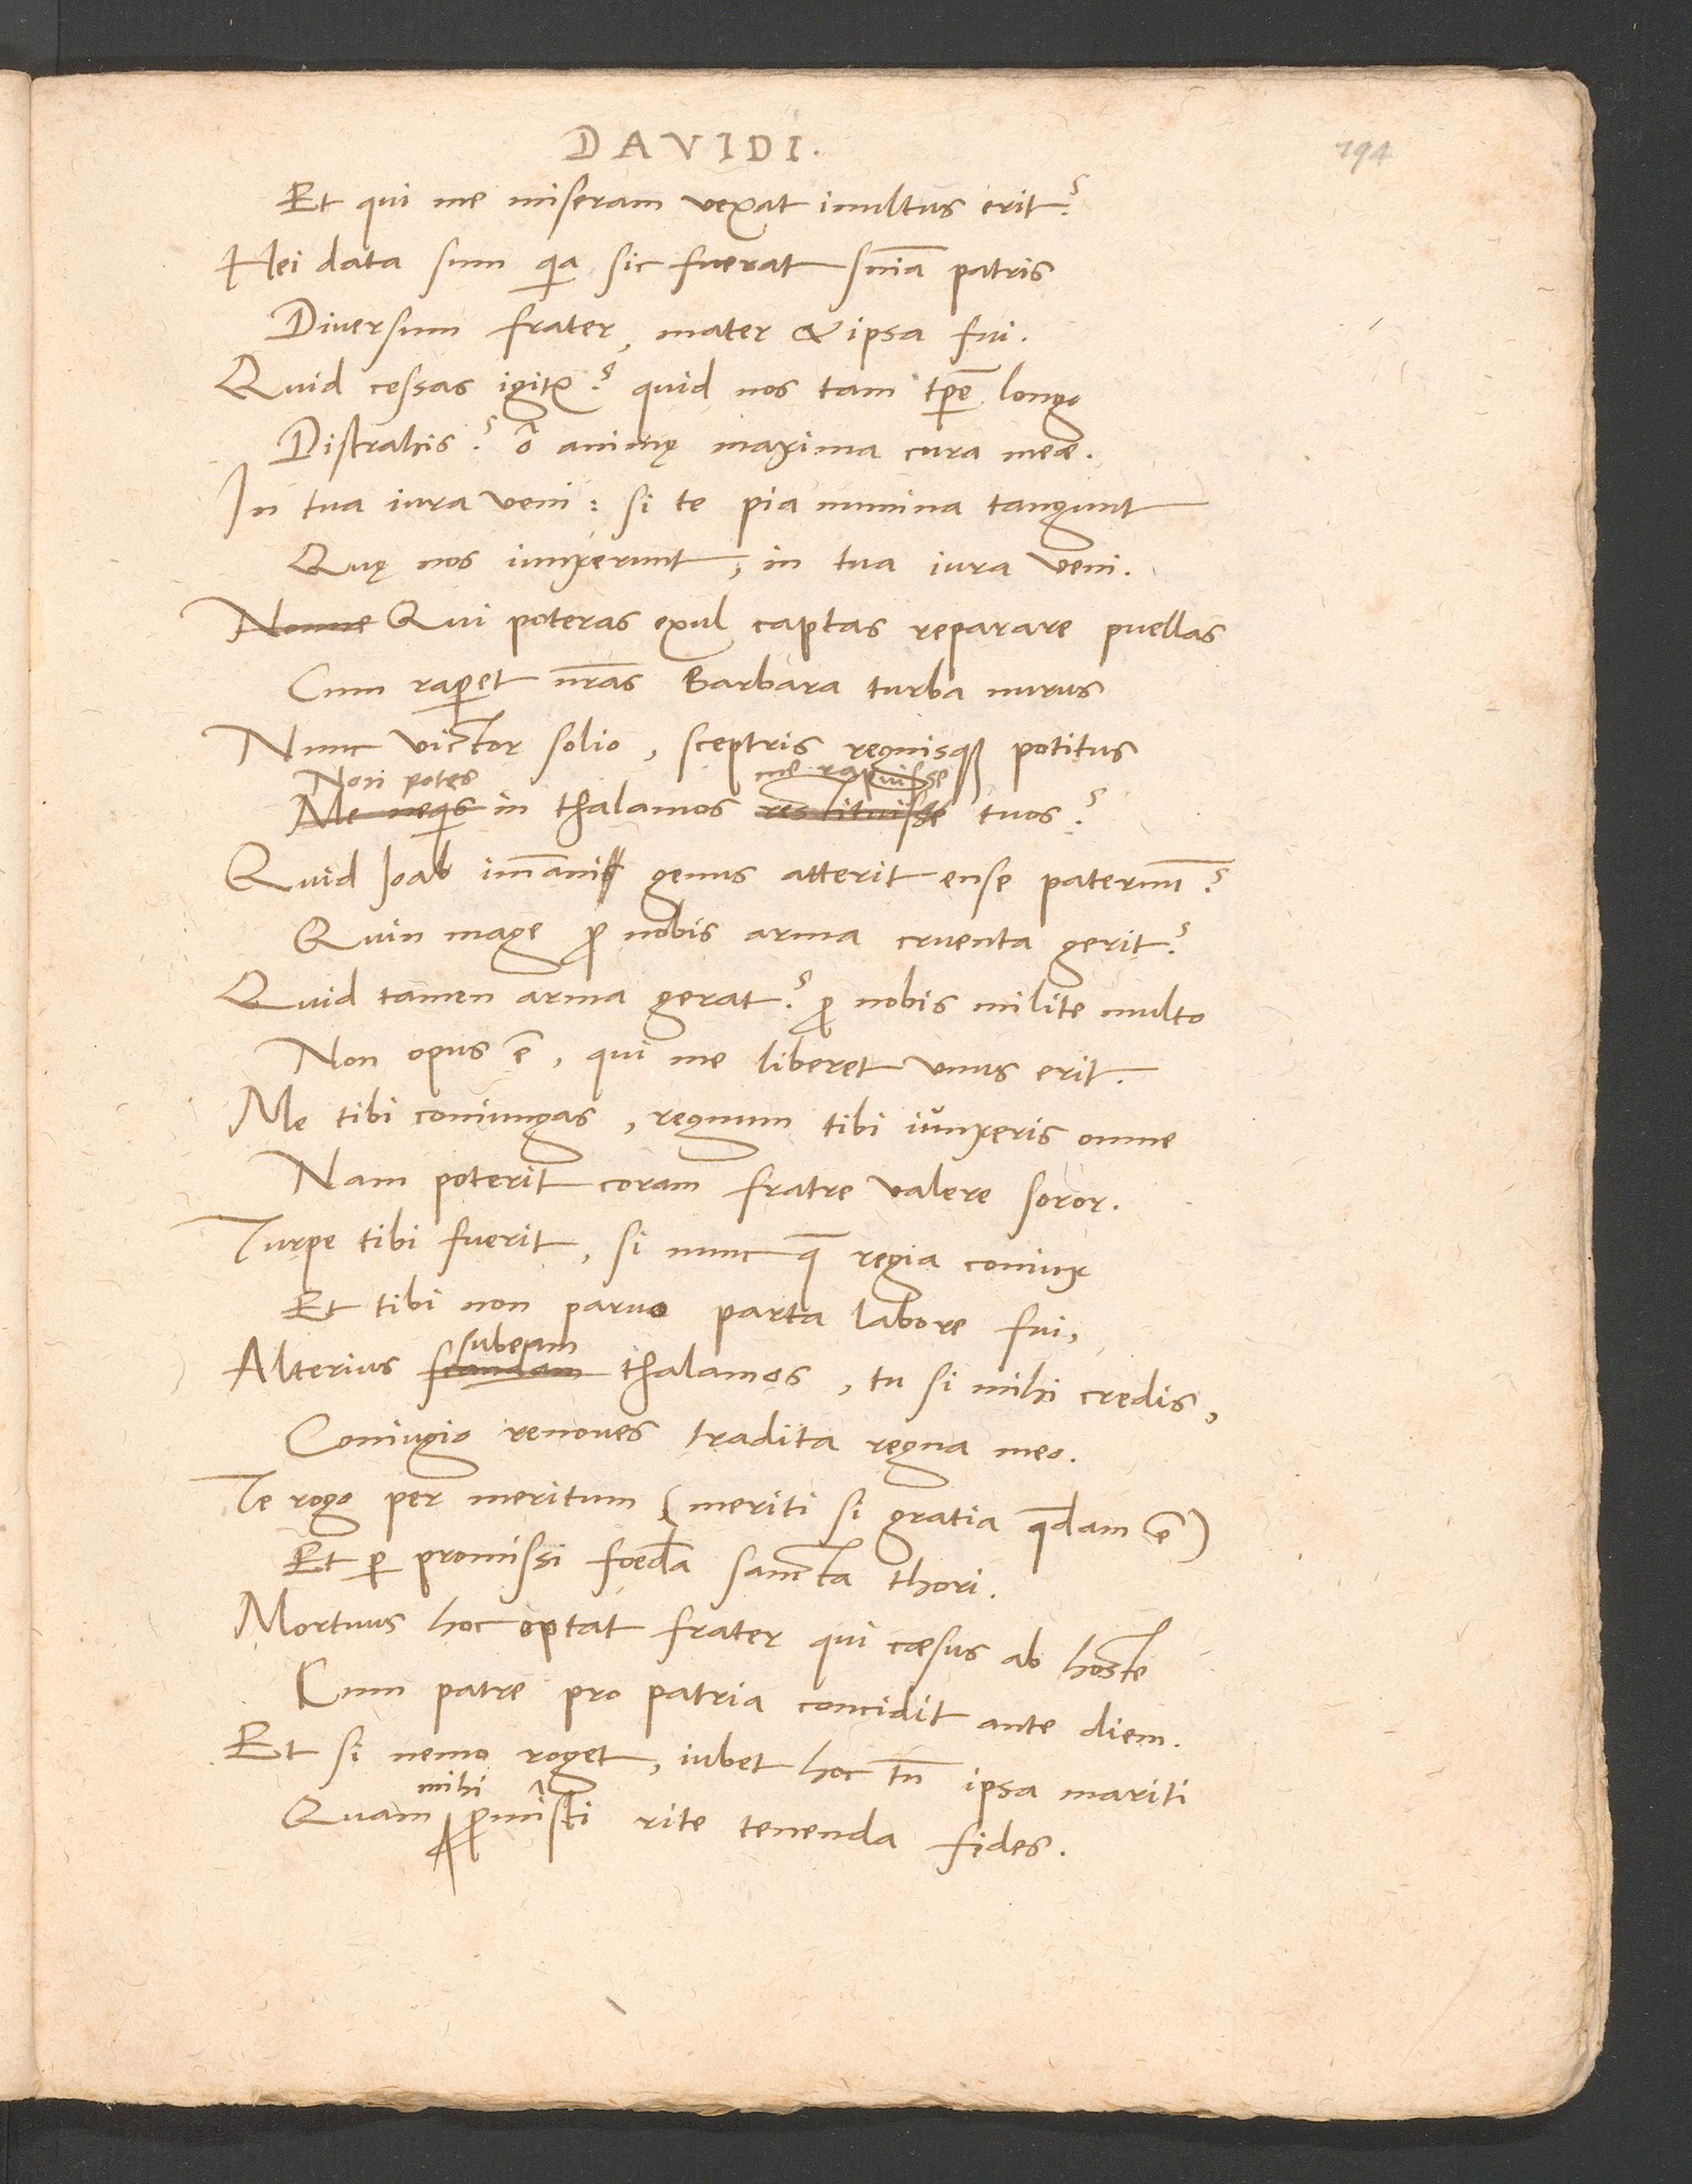 DAVIDI.
194
Et qui me miseram vexat inultus erit?
Hei data sum qa sic fuerat snia patris
Diversum frater, mater & ipsa fui.
Quid cessas igitr? quid nos tam tpe longo
Distrahis? ô animę maxima cura meæ.
In tua iura veni: si te pia numina tangunt
Quę nos iunxerunt, in tua iura veni.
Nonne Qui poteras exul captas reparare puellas
Cum rapet nras Barbara turba nurus
Nunc victor solio, sceptris regnisqß potitus
Non potes me rapuisse
Me nequis in thalamos restituisse tuos?
Quid Joab imanis genus atterit ense paternu?
Quin mage p nobis arma cruenta gerit?
Quid tamen arma gerat? p nobis milite multo
Non opus ē, qui me liberet unus erit.
Me tibi coniungas, regnum tibi iunxeris omne
Nam poterit coram fratre valere soror.
Turpe tibi fuerit, si nunc q̄ regia coniux
Et tibi non parvo parta labore fui,
subeam
Alterius scandam thalamos, tu si mihi credis,
Coniugio renoves tradita regna meo.
Te rogo per meritum (meriti si gratia qdam ē)
Et p promissi foeda sancta thori.
Mortuus hoc optat frater qui cæsus ab hoste
Cum patre pro patria concidit ante diem.
Et si nemo roget, iubet hoc tn̄ ipsa mariti
mihi
Quam pmîsti rite tenenda fides.